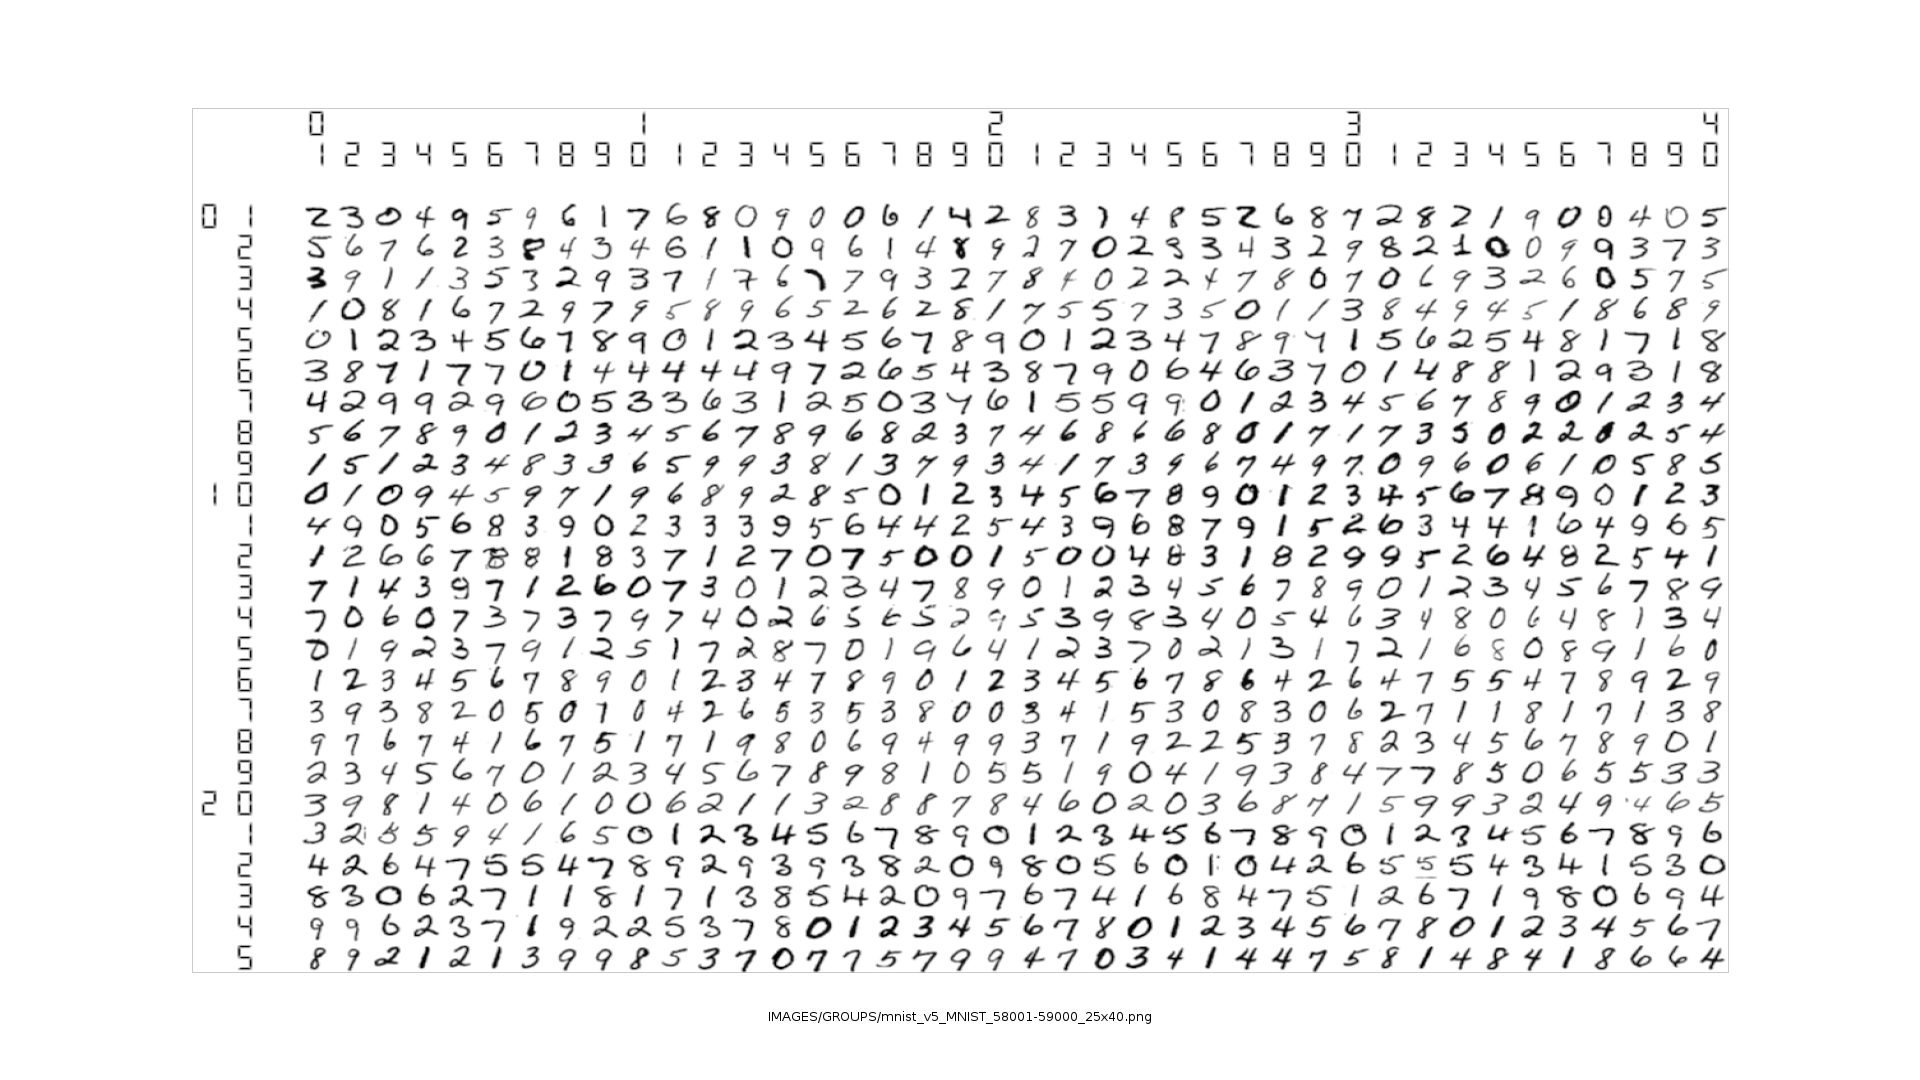 0 1 2 3 4
1 2 3 4 5 6 7 8 9 0 1 2 3 4 5 6 7 8 9 0 1 2 3 4 5 6 7 8 9 0 1 2 3 4 5 6 7 8 9 0
0 1 2 3 0 4 9 5 9 6 1 7 6 8 0 9 0 0 6 1 4 2 8 3 1 4 8 5 2 6 8 7 2 8 2 1 9 0 0 4 0 5
2 5 6 7 6 2 3 8 4 3 4 6 1 1 0 9 6 1 4 8 9 2 7 0 2 9 3 4 3 2 9 8 2 1 0 0 9 9 3 7 3
3 3 9 1 1 3 5 3 2 9 3 7 1 7 6 7 7 9 3 2 7 8 4 0 2 2 4 7 8 0 7 0 6 9 3 2 6 0 5 7 5
4 1 0 8 1 6 7 2 9 7 9 5 8 9 6 5 2 6 2 8 1 7 5 5 7 3 5 0 1 1 3 8 4 9 4 5 1 8 6 8 9
5 0 1 2 3 4 5 6 7 8 9 0 1 2 3 4 5 6 7 8 9 0 1 2 3 4 7 8 9 4 1 5 6 2 5 4 8 1 7 1 8
6 3 8 7 1 7 7 0 1 4 4 4 4 4 9 7 2 6 5 4 3 8 7 9 0 6 4 6 3 7 0 1 4 8 8 1 2 9 3 1 8
7 4 2 9 9 2 9 6 0 5 3 3 6 3 1 2 5 0 3 4 6 1 5 5 9 9 0 1 2 3 4 5 6 7 8 9 0 1 2 3 4
8 5 6 7 8 9 0 1 2 3 4 5 6 7 8 9 6 8 2 3 7 4 6 8 6 6 8 0 1 7 1 7 3 5 0 2 2 0 2 5 4
9 1 5 1 2 3 4 8 3 3 6 5 9 9 3 8 1 3 7 9 3 4 1 7 3 9 6 7 4 9 7 0 9 6 0 6 1 0 5 8 5
1 0 0 1 0 9 4 5 9 7 1 9 6 8 9 2 8 5 0 1 2 3 4 5 6 7 8 9 0 1 2 3 4 5 6 7 8 9 0 1 2 3
1 4 9 0 5 6 8 3 9 0 2 3 3 3 9 5 6 4 4 2 5 4 3 9 6 8 7 9 1 5 2 6 3 4 4 1 6 4 9 6 5
2 1 2 6 6 7 8 8 1 8 3 7 1 2 7 0 7 5 0 0 1 5 0 0 4 8 3 1 8 2 9 9 5 2 6 4 8 2 5 4 1
3 7 1 4 3 9 7 1 2 6 0 7 3 0 1 2 3 4 7 8 9 0 1 2 3 4 5 6 7 8 9 0 1 2 3 4 5 6 7 8 9
4 7 0 6 0 7 3 7 3 7 9 7 4 0 2 6 5 6 5 2 9 5 3 9 8 3 4 0 5 4 6 3 4 8 0 6 4 8 1 3 4
5 0 1 9 2 3 7 9 1 2 5 1 7 2 8 7 0 1 9 6 4 1 2 3 7 0 2 1 3 1 7 2 1 6 8 0 8 9 1 6 0
6 1 2 3 4 5 6 7 8 9 0 1 2 3 4 7 8 9 0 1 2 3 4 5 6 7 8 6 4 2 6 4 7 5 5 4 7 8 9 2 9
7 3 9 3 8 2 0 5 0 7 0 4 2 6 5 3 5 3 8 0 0 3 4 1 5 3 0 8 3 0 6 2 7 1 1 8 1 7 1 3 8
8 9 7 6 7 4 1 6 7 5 1 7 1 9 8 0 6 9 4 9 9 3 7 1 9 2 2 5 3 7 8 2 3 4 5 6 7 8 9 0 1
9 2 3 4 5 6 7 0 1 2 3 4 5 6 7 8 9 8 1 0 5 5 1 9 0 4 1 9 3 8 4 7 7 8 5 0 6 5 5 3 3
2 0 3 9 8 1 4 0 6 1 0 0 6 2 1 1 3 2 8 8 7 8 4 6 0 2 0 3 6 8 7 1 5 9 9 3 2 4 9 4 6 5
1 3 2 5 5 9 4 1 6 5 0 1 2 3 4 5 6 7 8 9 0 1 2 3 4 5 6 7 8 9 0 1 2 3 4 5 6 7 8 9 6
2 4 2 6 4 7 5 5 4 7 8 9 2 9 3 9 3 8 2 0 9 8 0 5 6 0 1 0 4 2 6 5 5 5 4 3 4 1 5 3 0
3 8 3 0 6 2 7 1 1 8 1 7 1 3 8 5 4 2 0 9 7 6 7 4 1 6 8 4 7 5 1 2 6 7 1 9 8 0 6 9 4
4 9 9 6 2 3 7 1 9 2 2 5 3 7 8 0 1 2 3 4 5 6 7 8 0 1 2 3 4 5 6 7 8 0 1 2 3 4 5 6 7
5 8 9 2 1 2 1 3 9 9 8 5 3 7 0 7 7 5 7 9 9 4 7 0 3 4 1 4 4 7 5 8 1 4 8 4 1 8 6 6 4
IMAGES/GROUPS/mnist_v5_MNIST_58001-59000_25x40.png